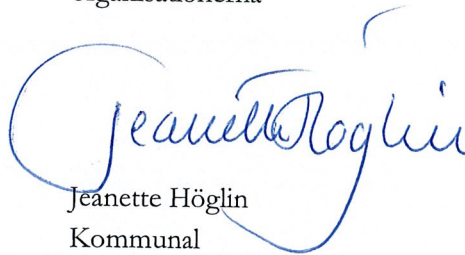 Jeanette Höglin
Jeanette Höglin
Kommunal